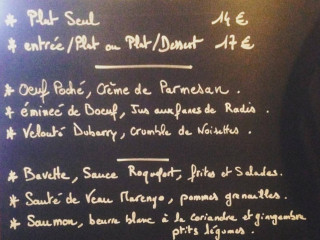 * Plat Seul 14 €
* entrée/Plat ou Plat/Dessert 17 €
* Oeuf Poché, Crème de Parmesan.
* émincé de Boeuf, Jus aux fanes de Radis.
* Velouté Dubarry, Crumble de Noisettes.
* Bavette, Sauce Roquefort, frites et Salades.
* Sauté de Veau Marengo, pommes grenailles.
* Saumon, beurre blanc à la coriandre et gingembre
ptits légumes.